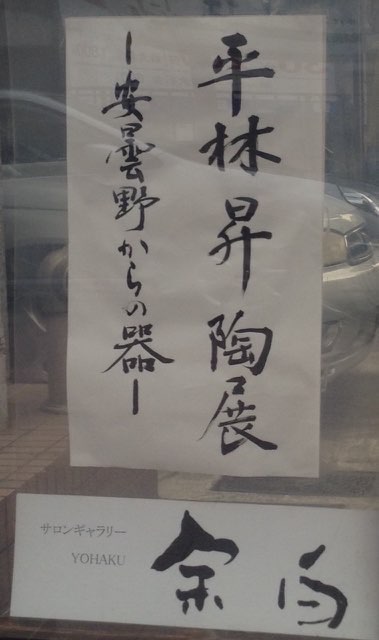 平林昇陶展
ー安曇野からの器ー
サロンギャラリー
YOHAKU
余白